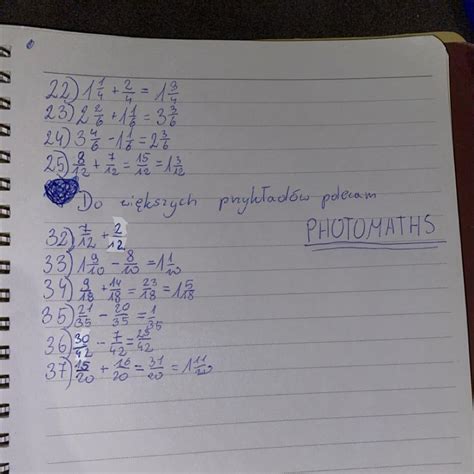 22) 1 1/4 + 2/4 = 1 3/4
23) 2 2/6 + 1 1/6 = 3 3/6
24) 3 4/6 - 1 1/6 = 2 3/6
25) 8/12 + 7/12 = 15/12 = 1 3/12
Do większych przykładów polecam
PHOTOMATHS
32) 7/12 + 2/12
33) 1 9/10 - 8/10 = 1 1/10
34) 9/18 + 14/18 = 23/18 = 1 5/18
35) 21/35 - 20/35 = 1/35
36) 30/42 - 7/42 = 23/42
37) 15/20 + 16/20 = 31/20 = 1 11/20